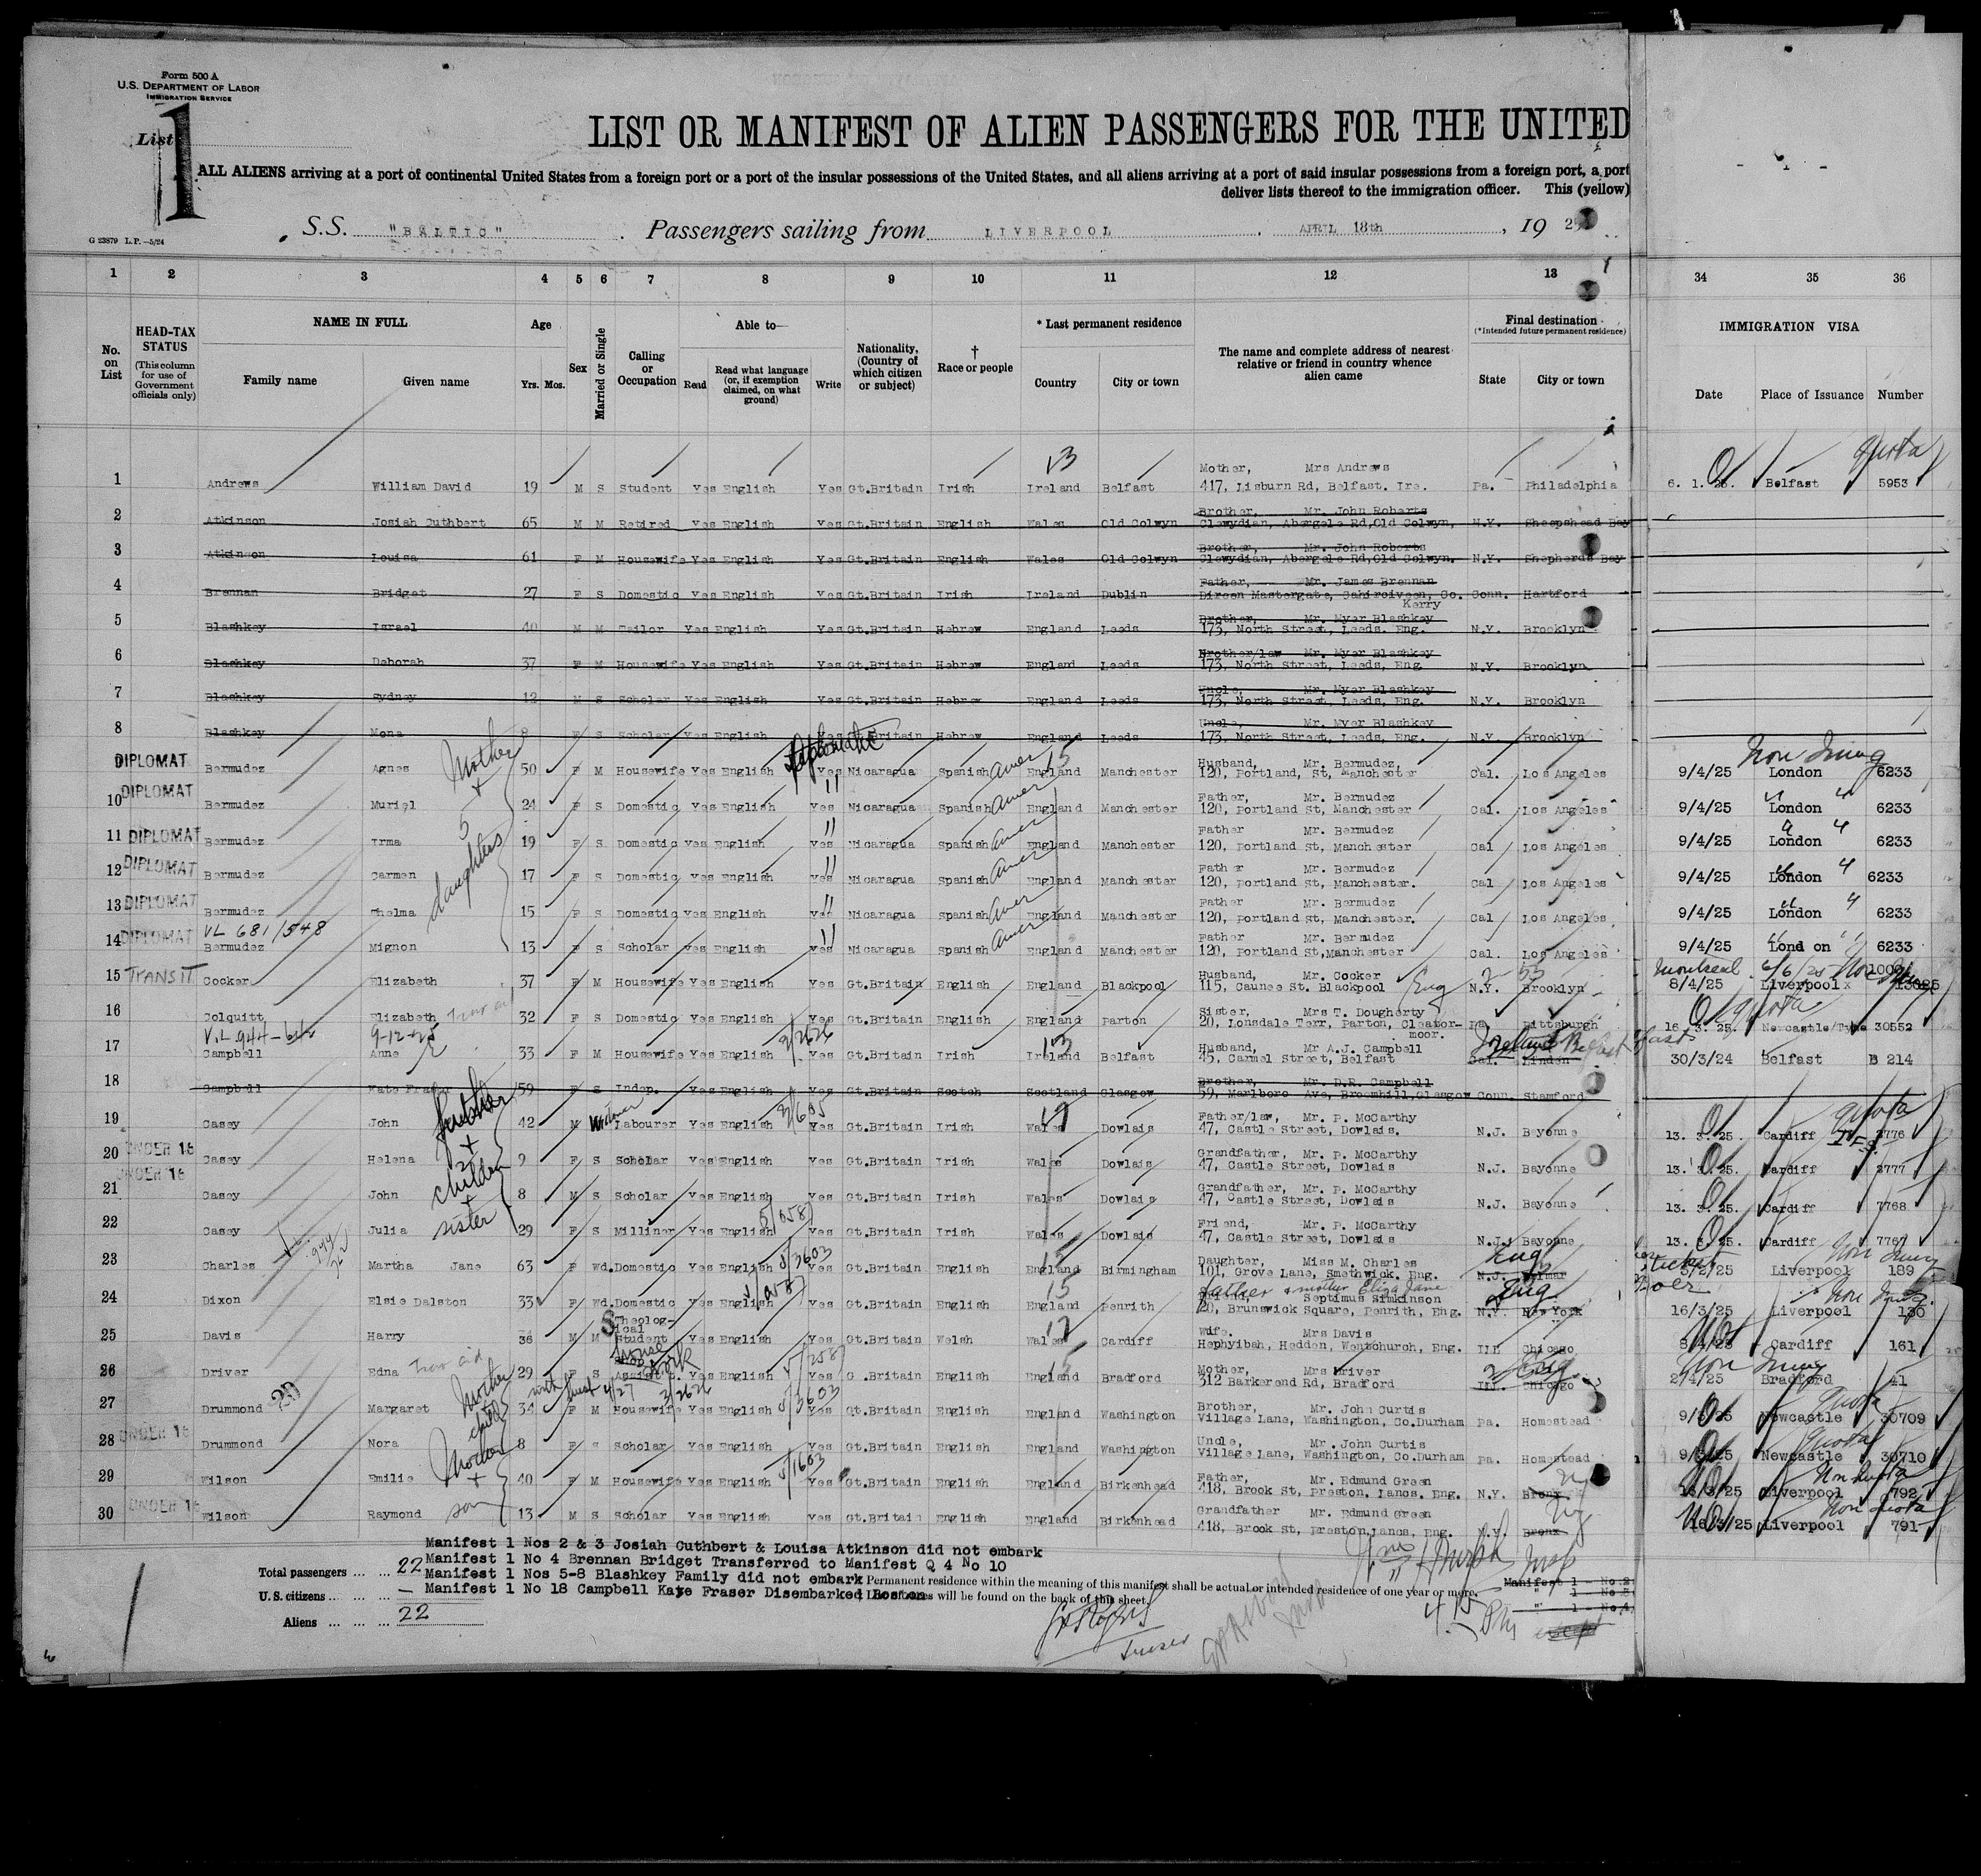 Form 500 A
U.S. DEPARTMENT OF LABOR
IMMIGRATION SERVICE
List 1
LIST OR MANIFEST OF ALIEN PASSENGERS FOR THE UNITED
ALL ALIENS arriving at a port of continental United States from a foreign port or a port of the insular possessions of the United States, and all aliens arriving at a port of said insular possessions from a foreign port, a port
deliver lists thereof to the immigration officer. This (yellow)
S.S. "BALTIC" Passengers sailing from LIVERPOOL, APRIL 18th, 19 2
G 23879 L.P.—5/24
1 2 3 4 5 6 7 8 9 10 11 12 13 34 35 36
No. on List
HEAD-TAX STATUS
(This column for use of Government officials only)
NAME IN FULL
Family name Given name
Age
Yrs. Mos.
Sex
Married or Single
Calling or Occupation
Able to—
Read
Read what language (or, if exemption claimed, on what ground)
Write
Nationality, (Country of which citizen or subject)
† Race or people
* Last permanent residence
Country City or town
The name and complete address of nearest relative or friend in country whence alien came
Final destination
(*Intended future permanent residence)
State City or town
IMMIGRATION VISA
Date Place of Issuance Number
13 Quota
Mother, Mrs Andrews
1 Andrews William David 19 M S Student Yes English Yes Gt.Britain Irish Ireland Belfast 417, Lisburn Rd, Belfast. Ire. Pa. Philadelphia 6. 1. 25. Belfast 5953
Brother, Mr. John Roberts
2 Atkinson Josiah Cuthbert 65 M M Retired Yes English Yes Gt.Britain English Wales Old Colwyn Clewydian, Abergele Rd,Old Colwyn, N.Y. Sheepshead Bay
Brother, Mr. John Roberts
3 Atkinson Louisa 61 F M Housewife Yes English Yes Gt.Britain English Wales Old Colwyn Clewydian, Abergele Rd,Old Colwyn. N.Y. Shepherds Bay
Father, Mr. James Brennan
4 Brennan Bridget 27 F S Domestic Yes English Yes Gt.Britain Irish Ireland Dublin Direen Mastergate, Cahirciveen, Co. Kerry Conn. Hartford
Brother, Mr. Myer Blashkey
5 Blashkey Israel 40 M M Tailor Yes English Yes Gt.Britain Hebrew England Leeds 173, North Street, Leeds. Eng. N.Y. Brooklyn
Brother/law Mr. Myer Blashkey
6 Blashkey Deborah 37 F M Housewife Yes English Yes Gt.Britain Hebrew England Leeds 173, North Street, Leeds, Eng. N.Y. Brooklyn
Uncle, Mr. Myer Blashkey
7 Blashkey Sydney 12 M S Scholar Yes English Yes Gt.Britain Hebrew England Leeds 173, North Street, Leeds, Eng. N.Y. Brooklyn
Uncle, Mr. Myer Blashkey
8 Blashkey Mona 8 F S Scholar Yes English Yes Gt.Britain Hebrew England Leeds 173, North Street, Leeds, Eng. N.Y. Brooklyn
Mother + 5 daughters Diplomatic 15 Non Immig
Husband, Mr. Bermudez,
9 DIPLOMAT Bermudez Agnes 50 F M Housewife Yes English Yes Nicaragua Spanish Amer England Manchester 120, Portland, St, Manchester Cal. Los Angeles 9/4/25 London 6233
Father, Mr. Bermudez
10 DIPLOMAT Bermudez Muriel 24 F S Domestic Yes English Yes Nicaragua Spanish Amer England Manchester 120, Portland St, Manchester Cal. Los Angeles 9/4/25 London 6233
Father Mr. Bermudez
11 DIPLOMAT Bermudez Irma 19 F S Domestic Yes English Yes Nicaragua Spanish Amer England Manchester 120, Portland St, Manchester Cal Los Angeles 9/4/25 London 6233
Father Mr. Bermudez
12 DIPLOMAT Bermudez Carmen 17 F S Domestic Yes English Yes Nicaragua Spanish Amer England Manchester 120, Portland St, Manchester. Cal Los Angeles 9/4/25 London 6233
Father Mr. Bermudez
13 DIPLOMAT Bermudez Thelma 15 F S Domestic Yes English Yes Nicaragua Spanish Amer England Manchester 120, Portland St, Manchester. Cal Los Angeles 9/4/25 London 6233
VL 681/548
Father Mr. Bermudez
14 DIPLOMAT Bermudez Mignon 13 F S Scholar Yes English Yes Nicaragua Spanish Amer England Manchester 120, Portland St,Manchester Cal. Los Angeles 9/4/25 London 6233
Husband, Mr. Cocker Montreal
15 TRANSIT Cocker Elizabeth 37 F M Housewife Yes English Yes Gt.Britain English England Blackpool 115, Caunce St. Blackpool Eng N.Y. Brooklyn 8/4/25 Liverpool 13025
Sister, Mrs T. Dougherty Quota
16 Colquitt Elizabeth 32 F S Domestic Yes English Yes Gt.Britain English England Parton 20, Lonsdale Terr, Parton, Cleator-moor. Pa Pittsburgh 16. 3. 25. Newcastle/Tyne 30552
V.L. 944-642 9-12-25 2/2626 13
Husband, Mr A.J. Campbell Ireland Belfast
17 Campbell Anne 33 F M Housewife Yes English Yes Gt.Britain Irish Ireland Belfast 45, Carmel Street, Belfast Cal. Linden 30/3/24 Belfast B 214
Brother, Mr. D.R. Campbell
18 Campbell Kate Fraser 59 F S Indep. Yes English Yes Gt.Britain Scotch Scotland Glasgow 59, Marlboro Ave, Broomhill,Glasgow Conn. Stamford
Father + 2 children + sister
Father/law, Mr. P. McCarthy Quota
19 Casey John 42 M Labourer Yes English Yes Gt.Britain Irish Wales Dowlais 47, Castle Street, Dowlais. N.J. Bayonne 13. 3. 25. Cardiff 7776
Grandfather, Mr. P. McCarthy
20 UNDER 16 Casey Helena 9 F S Scholar Yes English Yes Gt.Britain Irish Wales Dowlais 47, Castle Street, Dowlais N.J. Bayonne 13. 3. 25. Cardiff 7777
Grandfather, Mr. P. McCarthy
21 UNDER 16 Casey John 8 M S Scholar Yes English Yes Gt.Britain Irish Wales Dowlais 47, Castle Street, Dowlais N.J. Bayonne 13. 3. 25. Cardiff 7768
Friend, Mr. P. McCarthy
22 Casey Julia 29 F S Milliner Yes English Yes Gt.Britain Irish Wales Dowlais 47, Castle Street, Dowlais N.J. Bayonne 13. 3. 25. Cardiff 7767
Daughter, Miss M. Charles Eng Non Immig
23 Charles Martha Jane 63 F Wd. Domestic Yes English Yes Gt.Britain English England Birmingham 101, Grove Lane, Smethwick. Eng. N.J. 3/2/25 Liverpool 189
Father + mother Eliza Jane Septimus Simkinson Eng.
24 Dixon Elsie Dalston 33 F Wd. Domestic Yes English Yes Gt.Britain English England Penrith 20, Brunswick Square, Penrith, Eng. N.Y. New York 16/3/25 Liverpool 130
Wife. Mrs Davis
25 Davis Harry 36 M M Theological Student Yes English Yes Gt.Britain Welsh Wales Cardiff Hephyibah, Hedden, Wentchurch, Eng. Ill Chicago 8/4/25 Cardiff 161
house work Non Immig
Mother, Mrs Driver
26 Driver Edna 29 F S Yes English Yes Gt.Britain English England Bradford 312 Barkerend Rd, Bradford Eng Ill. Chicago 2/4/25 Bradford 41
Mother + child
Brother, Mr. John Curtis Quota
27 Drummond Margaret 34 F M Housewife Yes English Yes Gt.Britain English England Washington Village Lane, Washington, Co.Durham Pa. Homestead 9/3/25 Newcastle 30709
Uncle, Mr. John Curtis Quota
28 UNDER 16 Drummond Nora 8 F S Scholar Yes English Yes Gt.Britain English England Washington Village Lane, Washington, Co.Durham Pa. Homestead 9/3/25 Newcastle 30710
Mother + son
Father, Mr. Edmund Green Non Quota
29 Wilson Emilie 40 F M Housewife Yes English Yes Gt.Britain English England Birkenhead 418, Brook St, Preston. Lancs. Eng. N.Y. Bronx 16/3/25 Liverpool 792
Grandfather Mr. Edmund Green Non Quota
30 UNDER 16 Wilson Raymond 13 M S Scholar Yes English Yes Gt.Britain English England Birkenhead 418, Brook St, Preston,Lancs, Eng. N.Y. Bronx 16/3/25 Liverpool 791
Manifest 1 Nos 2 & 3 Josiah Cuthbert & Louisa Atkinson did not embark
Manifest 1 No 4 Brennan Bridget Transferred to Manifest Q 4 No 10
Total passengers ... ... 22
Manifest 1 Nos 5-8 Blashkey Family did not embark
Permanent residence within the meaning of this manifest shall be actual or intended residence of one year or more.
U.S. citizens ... ... ... —
Manifest 1 No 18 Campbell Kate Fraser Disembarked Boston
will be found on the back of this sheet.
Aliens ... ... ... 22
Manifest 1 - No.2
" 1 - No.3
" 1 - No.4